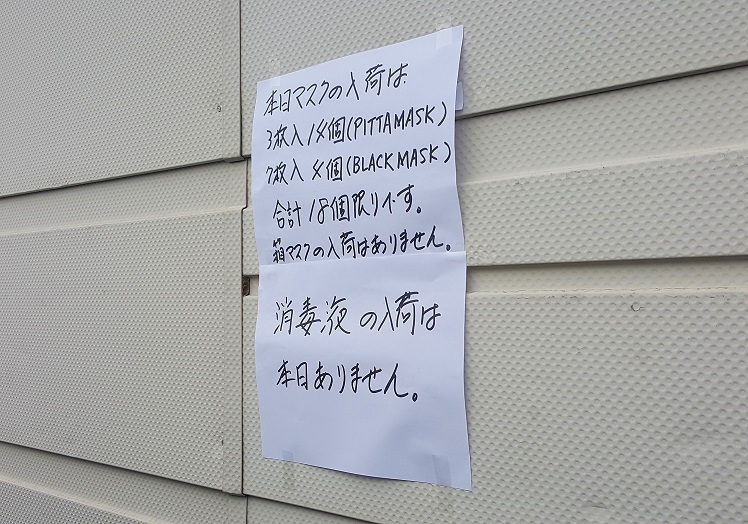 本日マスクの入荷は
3枚入 14個(PITTAMASK)
7枚入 4個(BLACKMASK)
合計 18個限りです。
箱マスクの入荷はありません。
消毒液の入荷は
本日ありません。